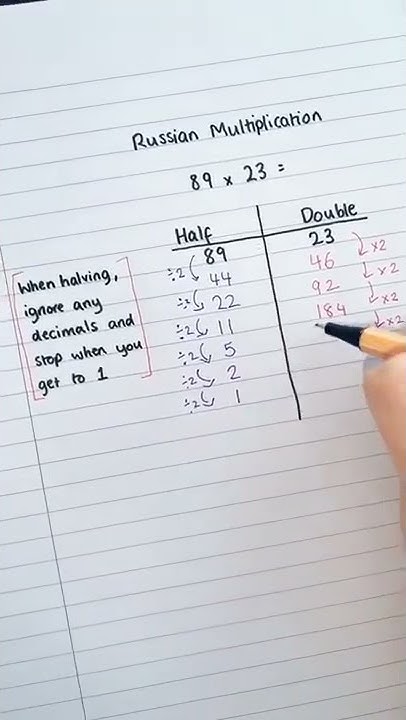 Russian Multiplication
89 x 23 =
Half Double
89 23
÷2 44 46 x2
÷2 22 92 x2
÷2 11 184 x2
÷2 5 x2
÷2 2
÷2 1
When halving,
ignore any
decimals and
stop when you
get to 1